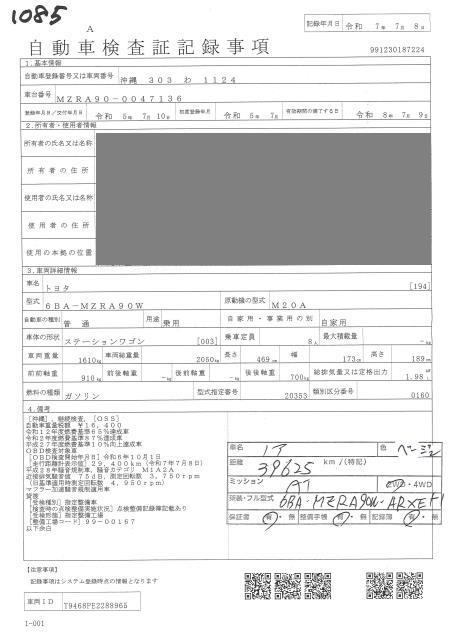 1085
A
記録年月日 令和 7年 7月 8日
自動車検査証記録事項
991230187224
1.基本情報
自動車登録番号又は車両番号 沖縄 303 わ 1124
車台番号 MZRA90-0047136
登録年月日/交付年月日 令和 5年 7月 10日 初度登録年月 令和 5年 7月 有効期間の満了する日 令和 8年 7月 9日
2.所有者・使用者情報
所有者の氏名又は名称
所有者の住所
使用者の氏名又は名称
使用者の住所
使用の本拠の位置
3.車両詳細情報
車名 トヨタ [194]
型式 6BA-MZRA90W 原動機の型式 M20A
自動車の種別 普通 用途 乗用 自家用・事業用の別 自家用
車体の形状 ステーションワゴン [003] 乗車定員 8人 最大積載量 -kg
車両重量 1610kg 車両総重量 2050kg 長さ 469cm 幅 173cm 高さ 189cm
前前軸重 910kg 前後軸重 -kg 後前軸重 -kg 後後軸重 700kg 総排気量又は定格出力 1.98L
燃料の種類 ガソリン 型式指定番号 20353 類別区分番号 0160
4.備考
[沖縄],継続検査,[OSS]
自動車重量税額 ¥16,400
令和12年度燃費基準65%達成車
令和2年度燃費基準87%達成車
平成27年度燃費基準10%向上達成車
OBD検査対象車
[OBD検査開始年月日]令和6年10月1日
[走行距離計表示値]29,400km(令和7年7月8日)
平成28年騒音規制車,騒音カテゴリ M1A2A
近接排気騒音値 75dB,測定回転数 3,750rpm
(旧基準適用時測定回転数 4,950rpm)
マフラー加速騒音規制適用車
[受検種別]指定整備車
[検査時の点検整備実施状況]点検整備記録簿記載あり
[受検形態]指定整備工場
[整備工場コード]99-00167
以下余白
車名 ノア 色 ベージュ
距離 39625 km/(特記)
ミッション AT 2WD・4WD
類別・フル型式 6BA-MZRA90W-ARXEF
保証書 有・無 整備手帳 有・無 記録簿 有・無
【注意事項】
記録事項はシステム登録時点の情報となります
車両ID T9468PE2288965
1-001